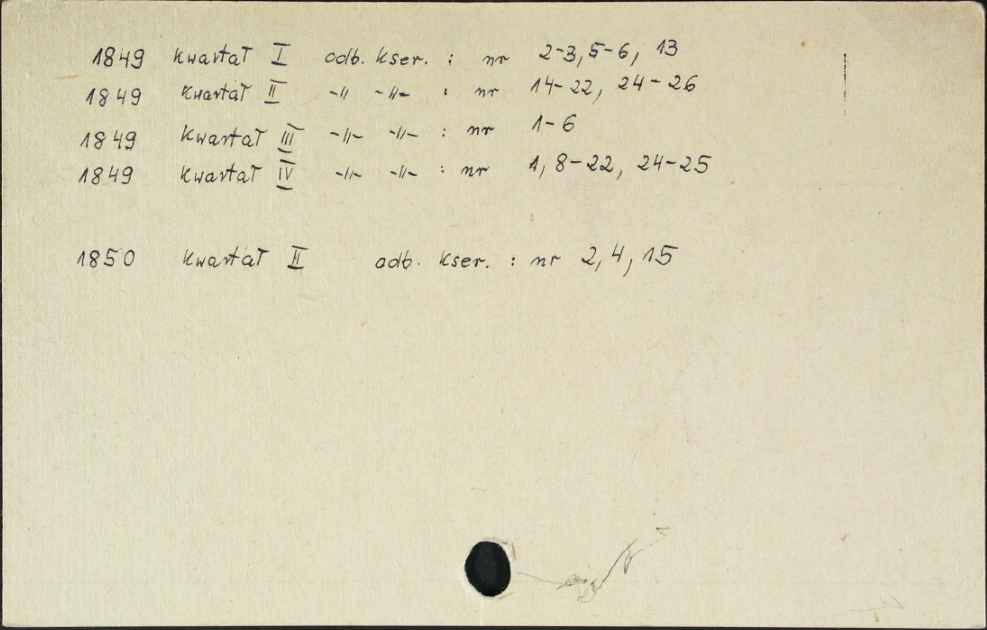 1849 kwartał I odb. kser. : nr 2-3, 5-6, 13
1849 kwartał II -//- -//- : nr 14-22, 24-26
1849 kwartał III -//- -//- : nr 1-6
1849 kwartał IV -//- -//- : nr 1, 8-22, 24-25
1850 kwartał II odb. kser. : nr 2, 4, 15